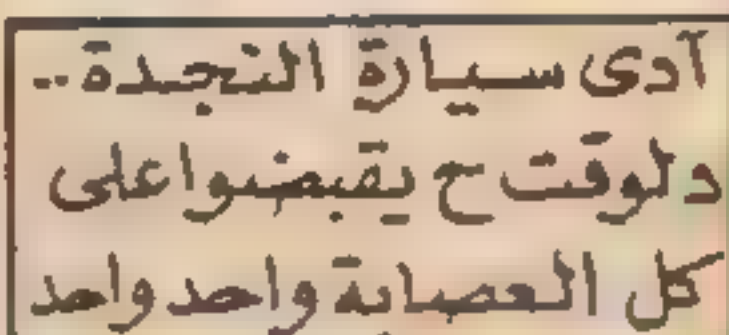 آدى سيارة النجدة..
دلوقت ح يقبضوا على
كل العصابة واحد واحد